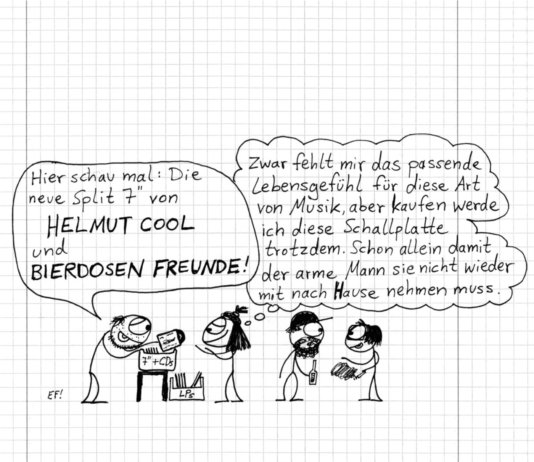 Hier schau mal: Die
neue Split 7" von
HELMUT COOL
und
BIERDOSEN FREUNDE!
Zwar fehlt mir das passende
Lebensgefühl für diese Art
von Musik, aber kaufen werde
ich diese Schallplatte
trotzdem. Schon allein damit
der arme Mann sie nicht wieder
mit nach Hause nehmen muss.
7"+CDs
LPs
EF!